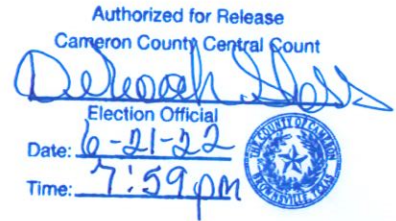 Authorized for Release
Cameron County Central Count
Deborah
Election Official
Date: 6-21-22
Time: 7:59 pm
THE COUNTY OF CAMERON
BROWNSVILLE, TEXAS